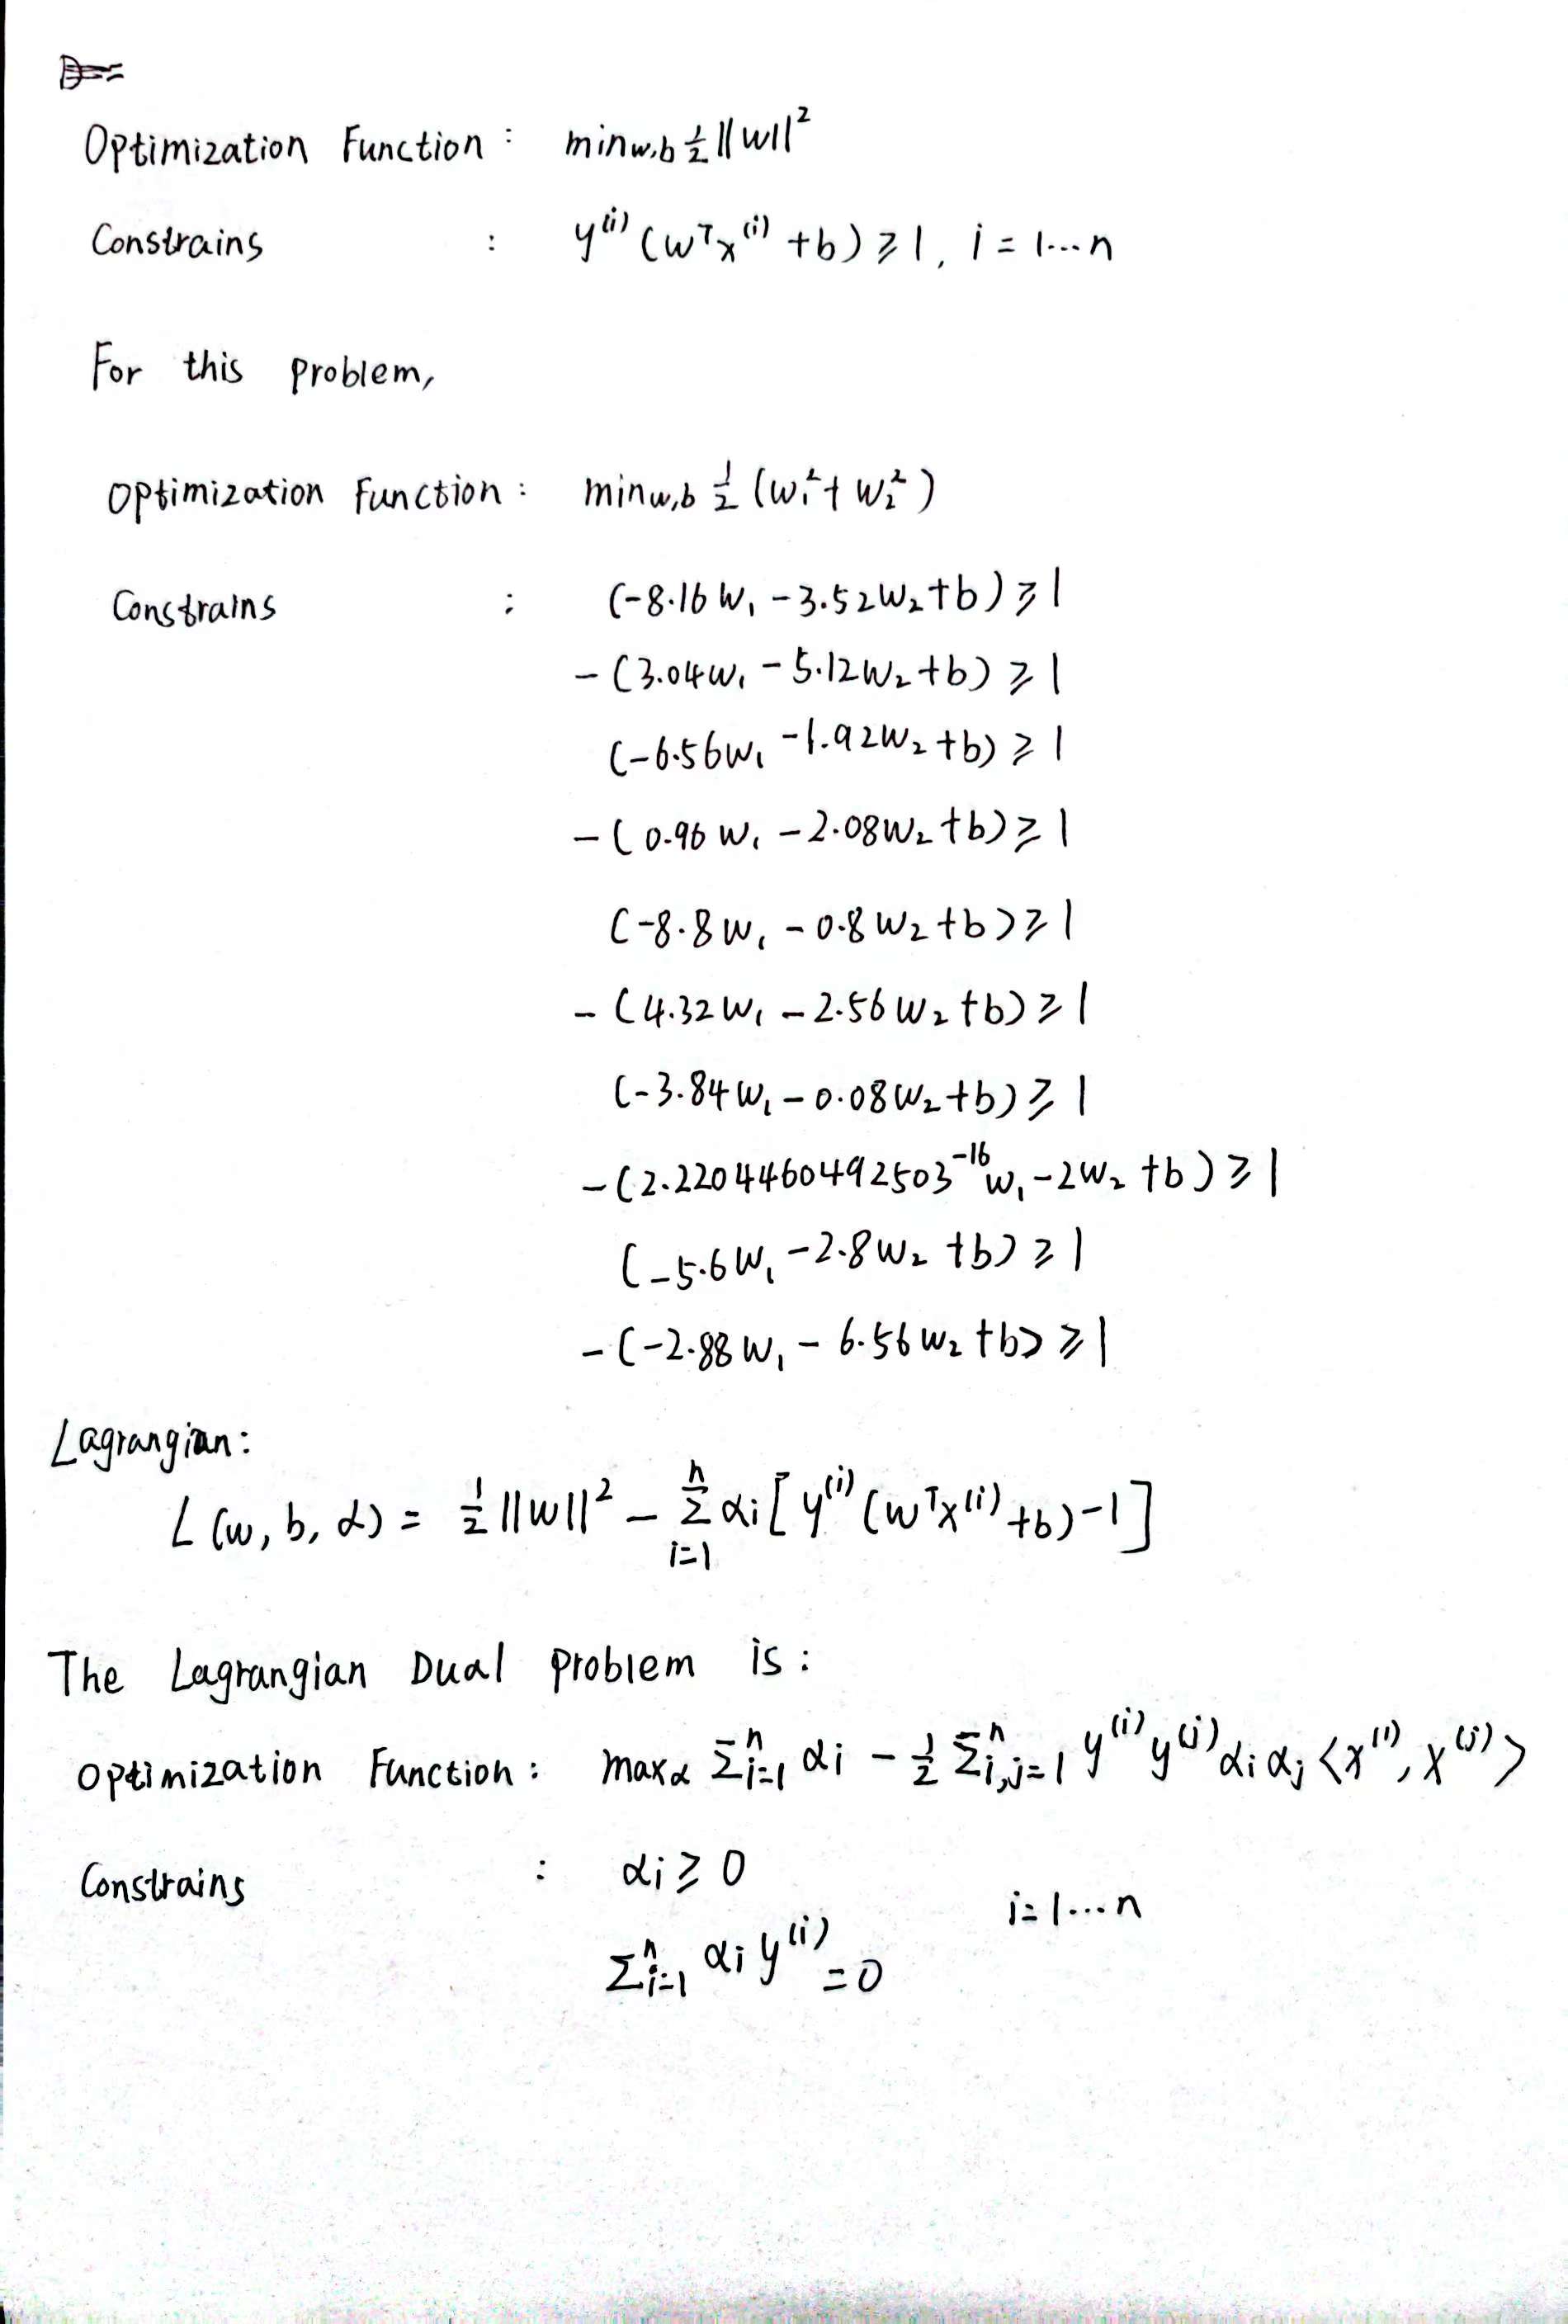 Optimization Function : min w,b ½ ||w||²
Constrains : y⁽ⁱ⁾ (wᵀx⁽ⁱ⁾ + b) ≥ 1, i = 1...n
For this problem,
Optimization Function : min w,b ½ (w₁² + w₂²)
Constrains : (-8.16 w₁ - 3.52 w₂ + b) ≥ 1
- (3.04 w₁ - 5.12 w₂ + b) ≥ 1
(-6.56 w₁ - 1.92 w₂ + b) ≥ 1
- (0.96 w₁ - 2.08 w₂ + b) ≥ 1
(-8.8 w₁ - 0.8 w₂ + b) ≥ 1
- (4.32 w₁ - 2.56 w₂ + b) ≥ 1
(-3.84 w₁ - 0.08 w₂ + b) ≥ 1
- (2.220446049 2503⁻¹⁶ w₁ - 2 w₂ + b) ≥ 1
(-5.6 w₁ - 2.8 w₂ + b) ≥ 1
- (-2.88 w₁ - 6.56 w₂ + b) ≥ 1
Lagrangian:
L (w, b, α) = ½ ||w||² - Σⁿᵢ₌₁ αᵢ [ y⁽ⁱ⁾ (wᵀx⁽ⁱ⁾ + b) - 1 ]
The Lagrangian Dual problem is :
Optimization Function : max α Σⁿᵢ₌₁ αᵢ - ½ Σⁿᵢ,ⱼ₌₁ y⁽ⁱ⁾ y⁽ʲ⁾ αᵢ αⱼ <x⁽ⁱ⁾, x⁽ʲ⁾>
Constrains : αᵢ ≥ 0
i = 1...n
Σⁿᵢ₌₁ αᵢ y⁽ⁱ⁾ = 0